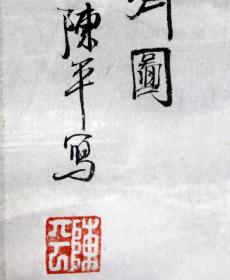 圖
陳平寫
陳平